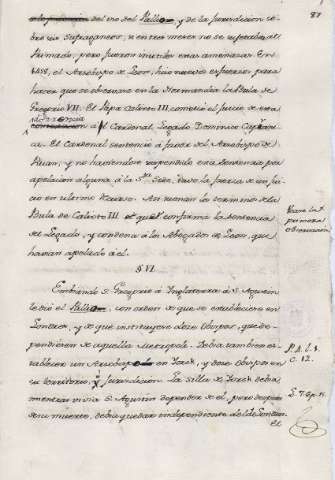 87
del uso del Pallio, y de la Jurisdiccion so-
bre sus sufraganeos, si entre menor no se sujetaba al
Primado, pero fueron inutiles estas amenazas. En
1458, el Arzobispo de Leon, hizo nuevos esfuerzos para
hacer que se observase en la Normandia la Bula de
Gregorio VII. El Papa Calixto III cometió el juicio de esta
al Cardenal, Legado Dominico Capra-
nica. El Cardenal sentenció á favor del Arzobispo de
Ruan, y no haviendose suspendido esta sentencia por
apelacion alguna á la Sta Sede, tuvo la fuerza de un jui-
cio en ultimo recurso. En Ruan la
Bula de Calixto III que confirma la sentencia
de Legado, y condena á los Abogados de Leon, que
havian apelado á el.
Vease la
primera
observacion
§ VI
Embiando S. Gregorio á Inglaterra á S. Agustin
le dió el Pallio, con orden de que se estableciese en
Londres, y de que instituyese doce Obispos, que de-
pendiesen de aquella Metropoli. Debia tambien es-
tablecer un Arzobispo en Yorck, y doce Obispos en
su territorio, y Jurisdiccion. La silla de Yorck debia
mientras vivia S. Agustin depender de el, pero despues
de su muerte, debia quedar independiente de la de Londres.
el
C. 12.